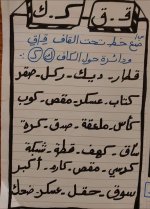 ق - ق ك - ك
ضع خط تحت القاف ق، ق
ودائرة حول الكاف ك ك:
قلم، ديك - ركل - صقر
كتاب - عسكر - مقص - كوب
كأس - ملعقة - صدق - كرة
ساق - كهف - قطة - سمكة
كرسي - مقص - كارد - أكبر
سوق - حقل - عسكر - ضحك